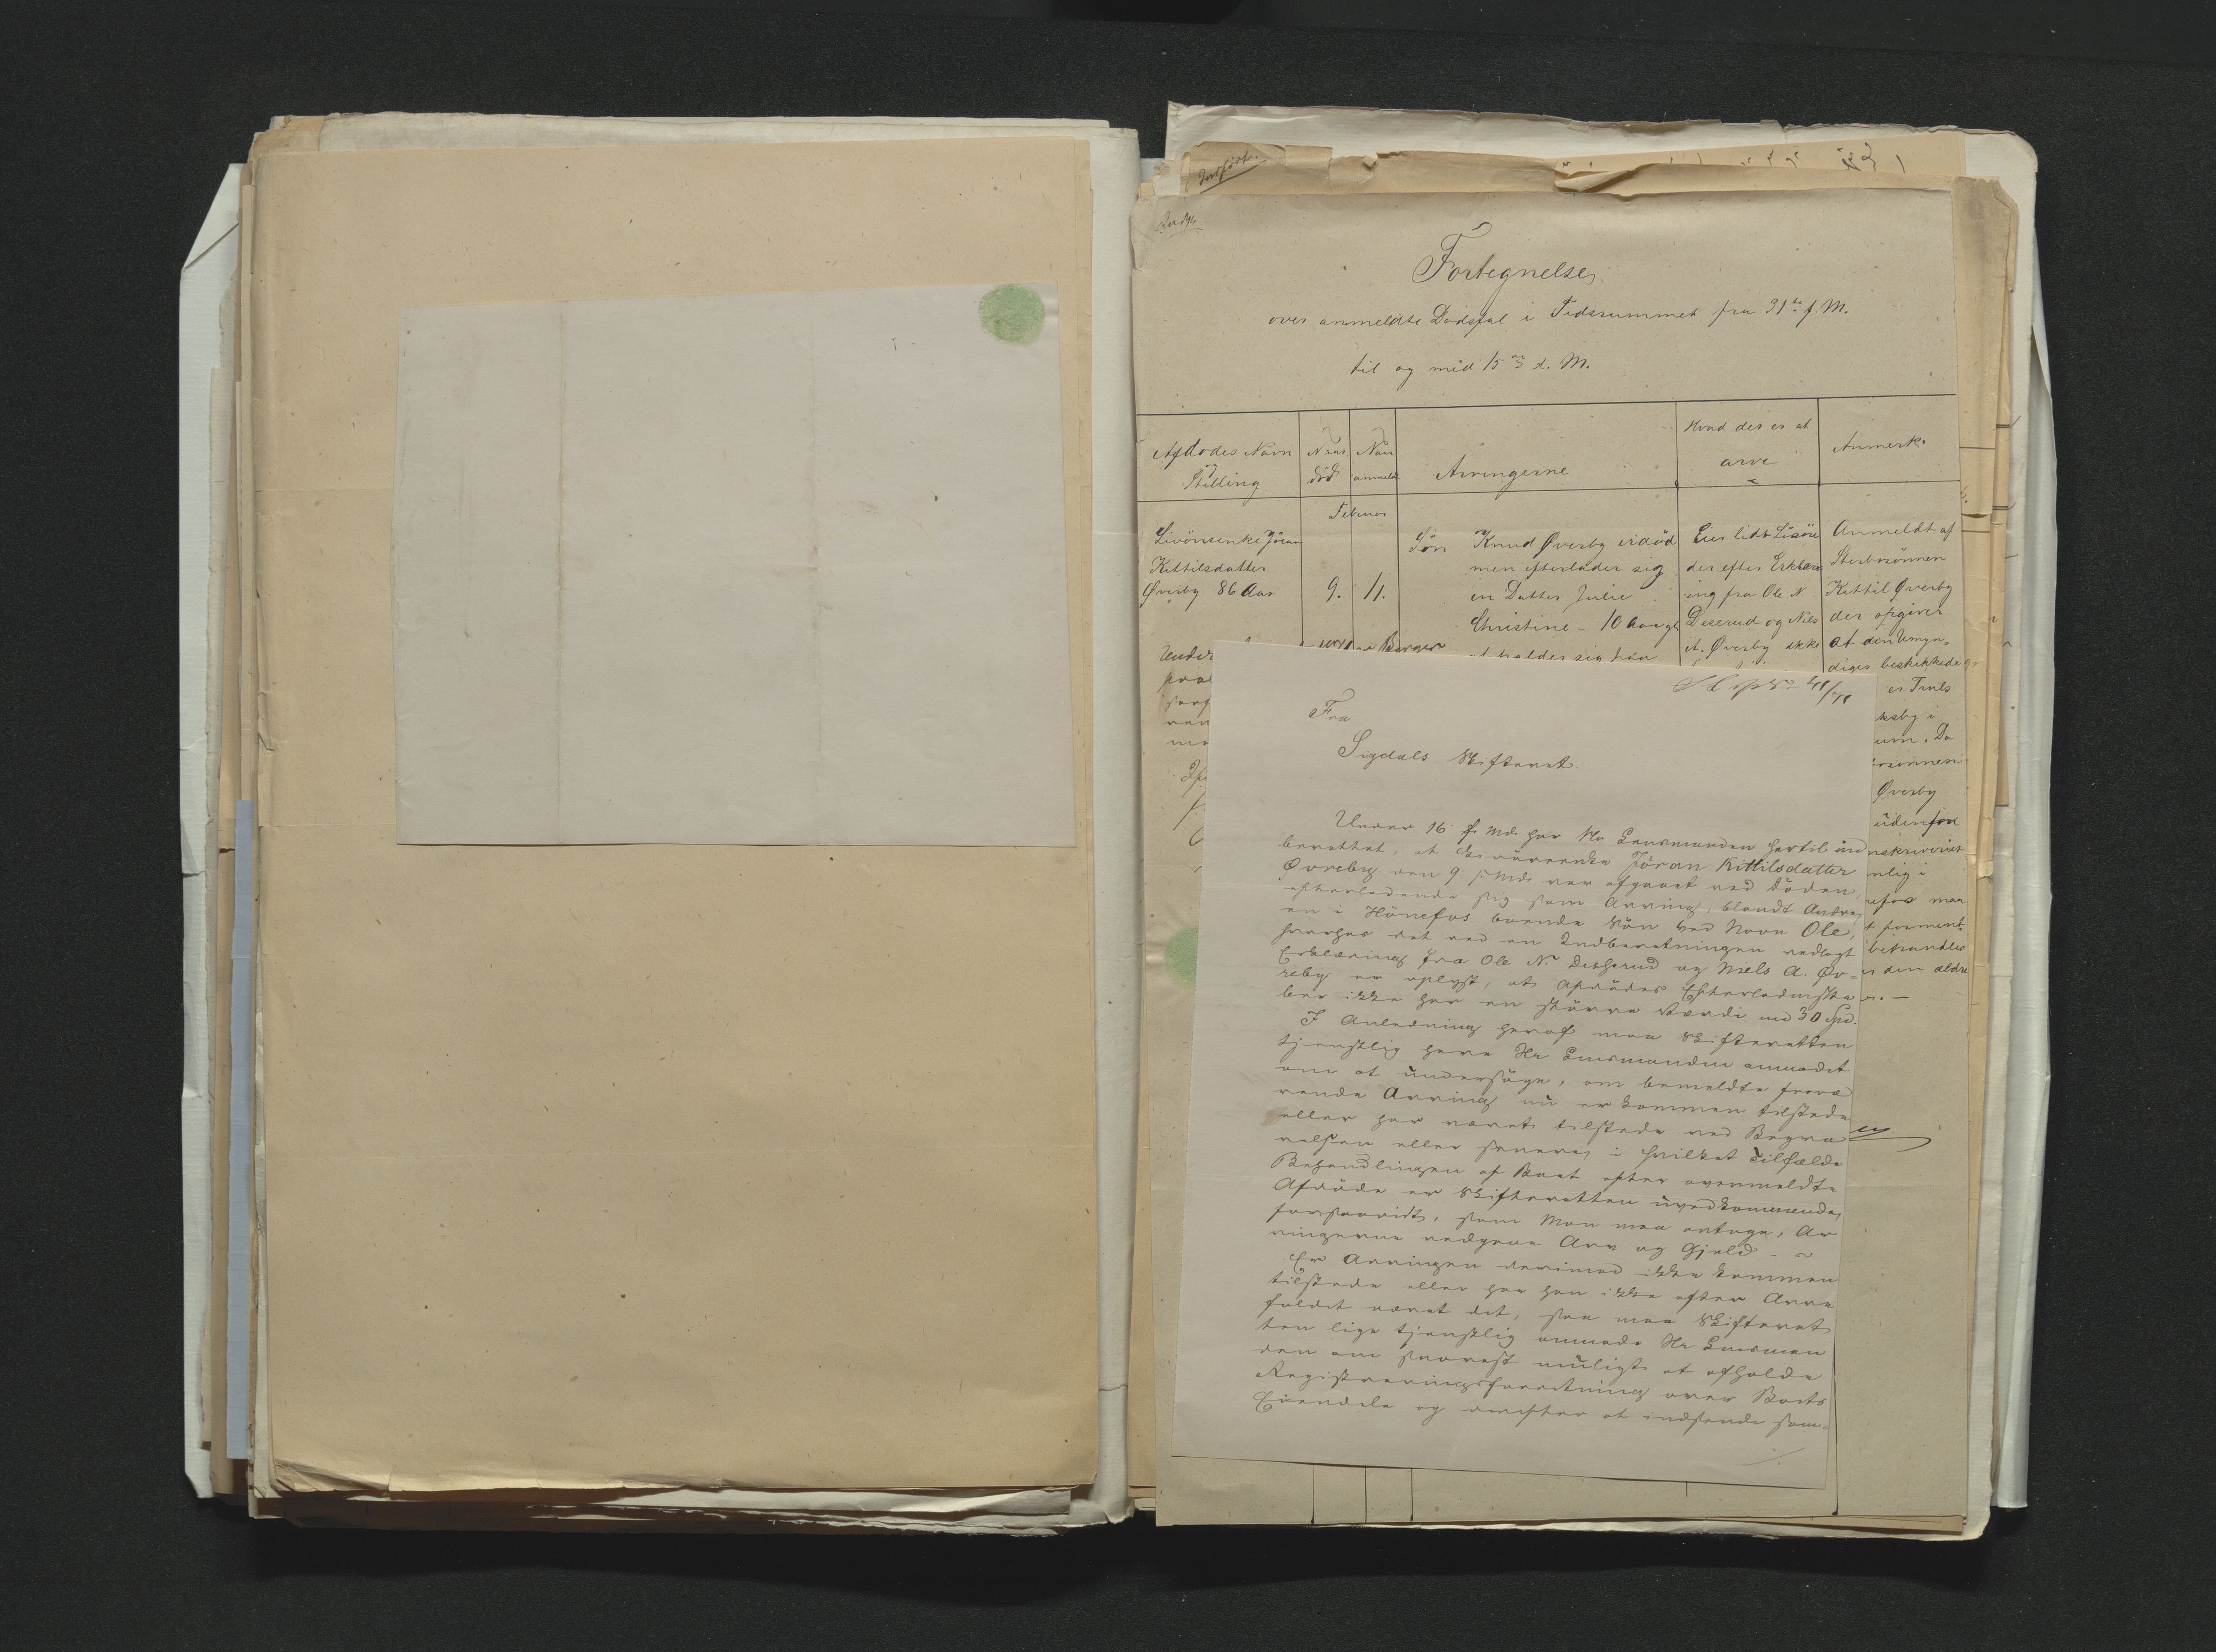 Indført.
Fortegnelse
over anmeldte Dødsfal i Tidsrummet fra 31te f. M.
til og med 15de d. M.
Afdødes Navn
Stilling
Naar
død
Naar
anmeldt
Arvingerne
Hvad der er at
arve
Anmerk.
Februar
Livörsenke Jöran
Kittilsdatter
Øvreby 86 Aar
9.
11.
Søn Knud Øvreby erdød
men efterlader sig
en Datter Julie
Christine - 10 Aar gl
opholder sig hos
Eier lidt Lösöre
der efter Erklær
ing fra Ole N.
Deserud og Niels
A. Øvreby ikke
Anmeldt af
Sterbosönnen
Kittil Øvreby
der opgiver
at den Umyn-
diges beskikkede
er Truls
ksby i
um. Da
osönnen
Øvreby
udenfor
nskriveriet
nlig i
efor maa
t forment
behandles
den ældre
Fra
Sigdals Skifteret.
Under 16 f. Md. har Hr Lensmanden hertil ind
berettet, at Livörsenke Jöran Kittilsdatter
Øvreby den 9 f. Md. var afgaaet ved Döden,
efterladende sig som Arving, blandt Andre,
en i Hönefos boende Sön ved Navn Ole,
hvorhos det ved en Indberetningen vedlagt
Erklæring fra Ole N. Deserud og Niels A. Øv-
reby er oplyst, at Afdödes Efterladenska
ber ikke har en större Værdi end 30 Spd.
I Anledning heraf maa Skifteretten
tjenstlig have Hr Lensmanden anmodet
om at undersöge, om bemeldte fravæ
rende Arving nu er kommen tilstede
eller har været tilstede ved Begra
velsen eller senere, i hvilket Tilfælde
Behandlingen af Boet efter ovenmeldte
Afdöde er Skifteretten uvedkommende,
forsaavidt, som man maa antage, Ar
vingerne vedgaae Arv og Gjeld. -
Er Arvingen derimod ikke kommen
tilstede eller har han ikke efter Arve
faldet været det, saa maa Skifteret
ten lige tjenstlig anmode Hr Lensman
den om snarest muligt at afholde
Registreringsforretning over Boets
Eiendele og derefter at indsende sam-